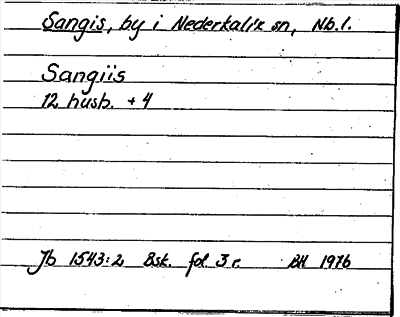 Sangis, by i Nederkalix sn, Nb.l.
Sangiis
12 husb. + 4
Jb 1543:2 Bsk. fol. 3 r. BH 1976